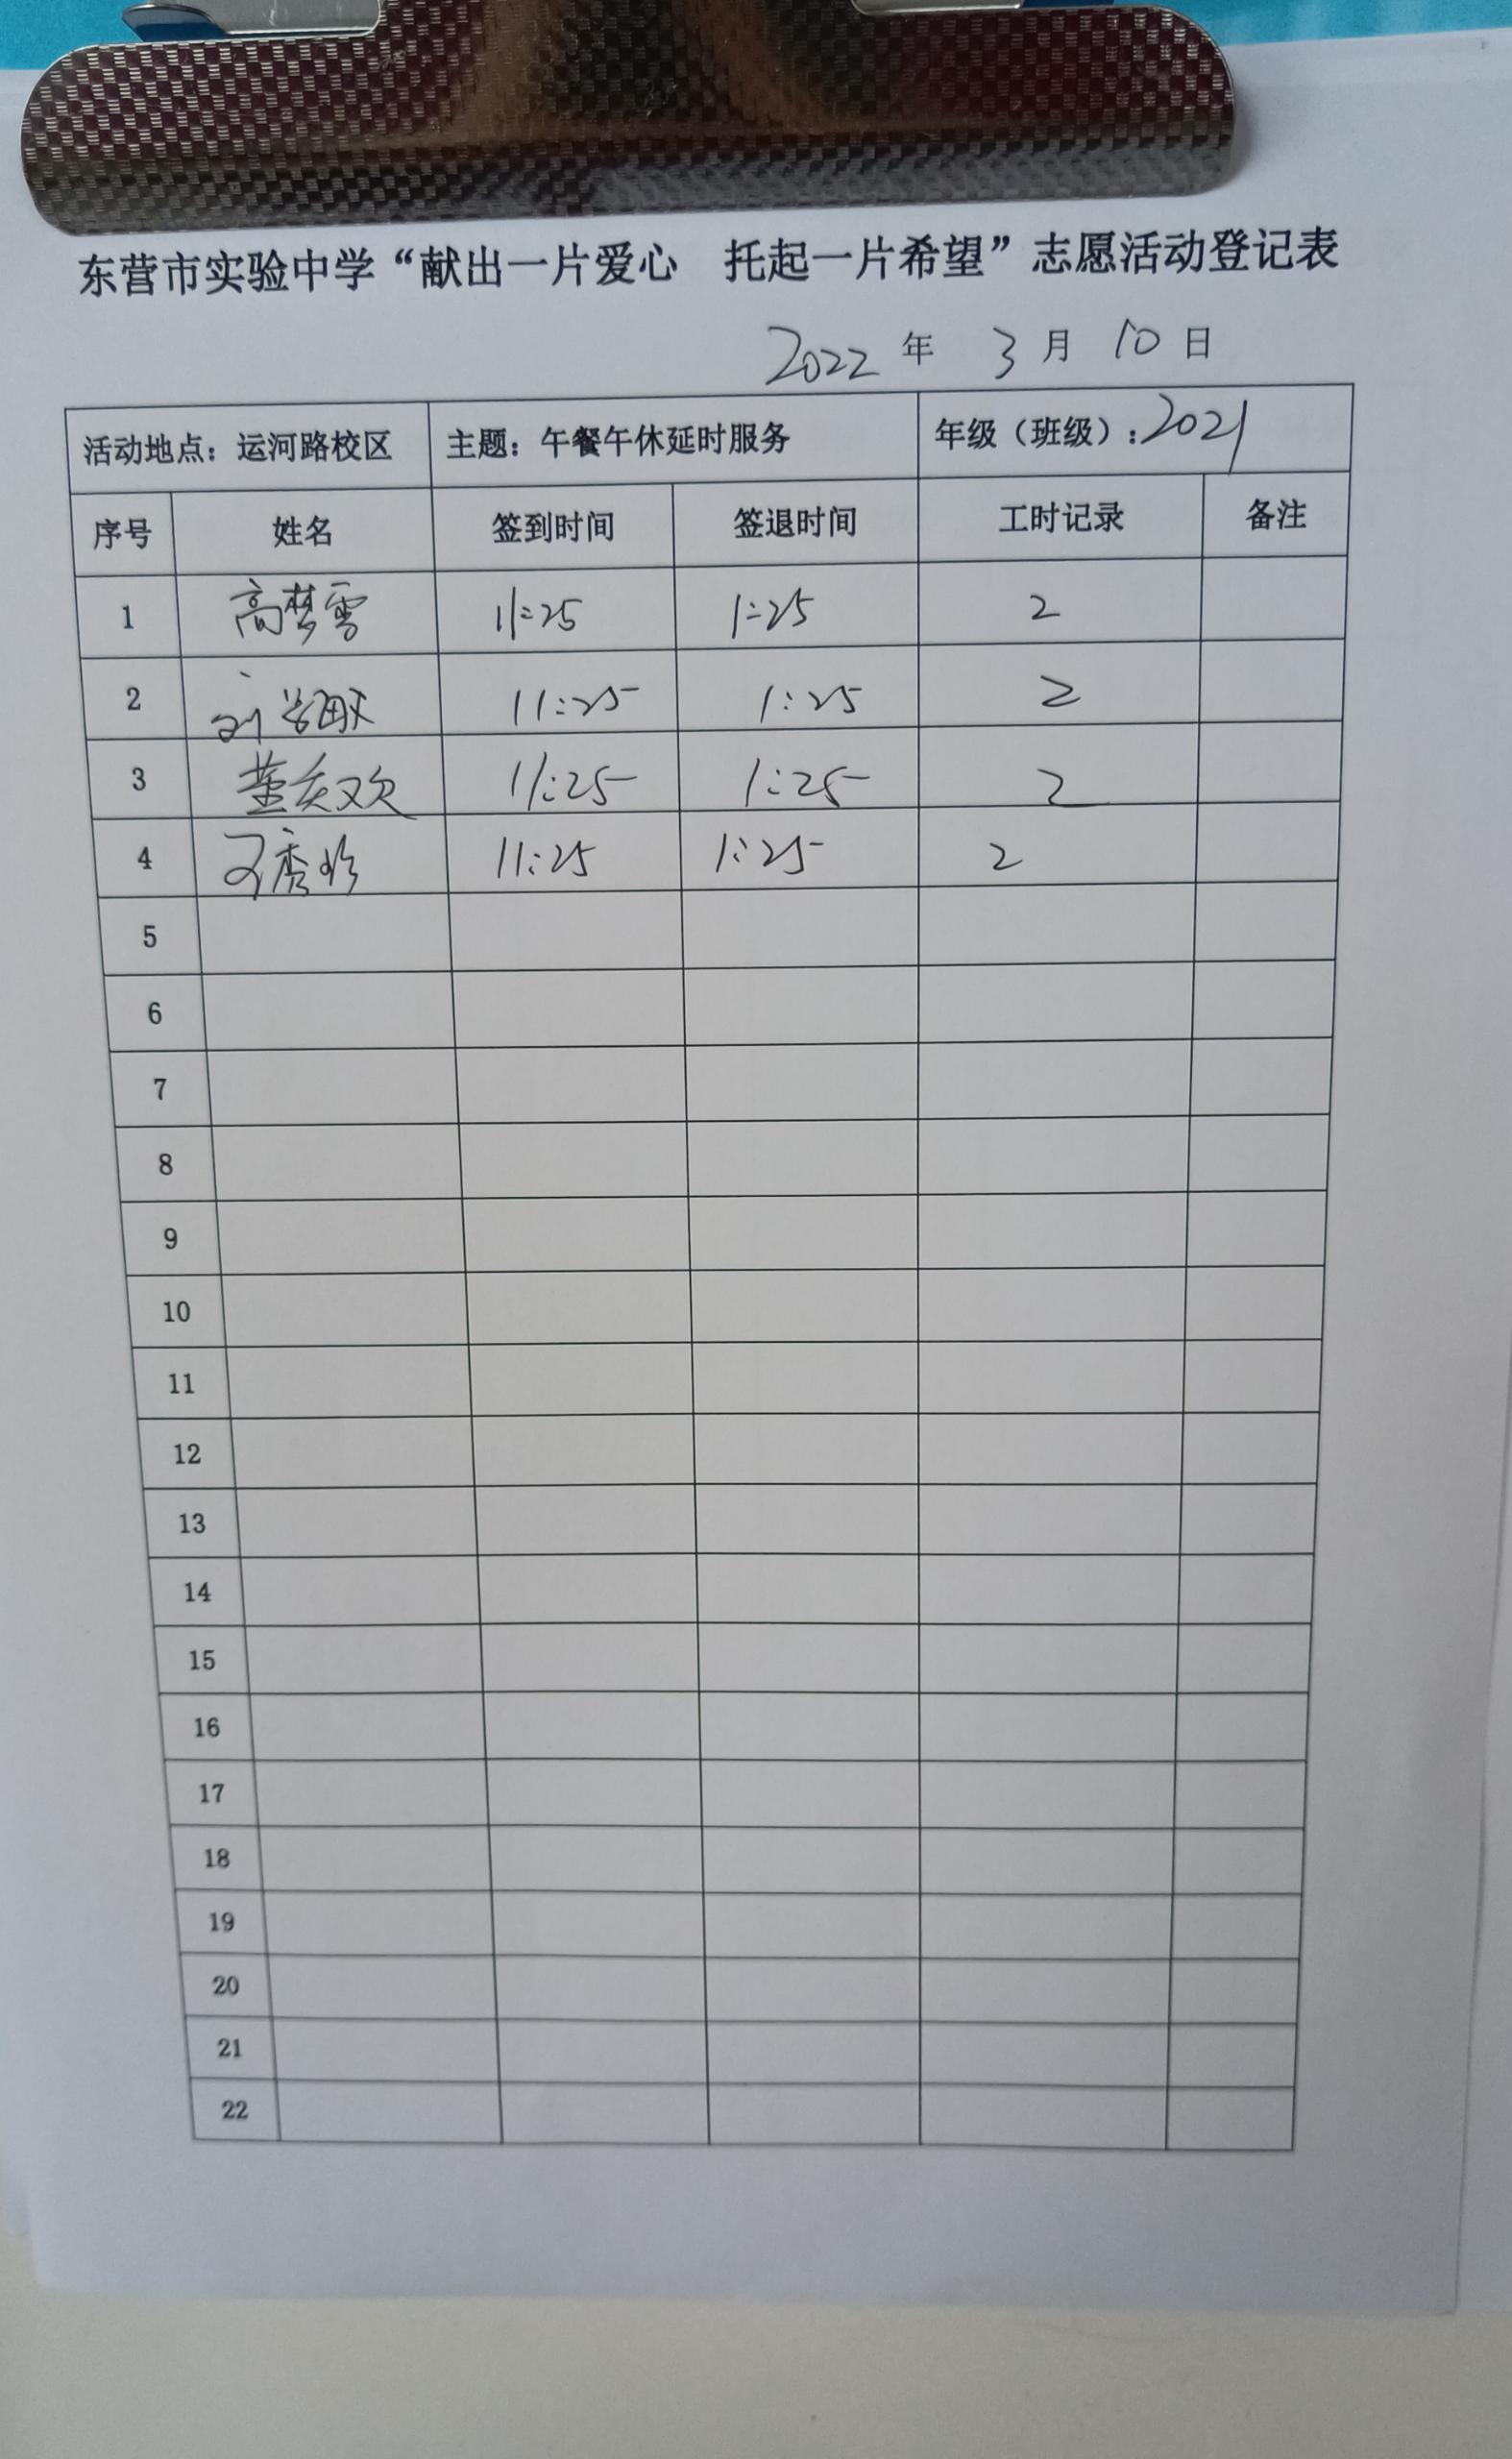 东营市实验中学“献出一片爱心 托起一片希望”志愿活动登记表
2022 年 3 月 10 日
活动地点：运河路校区 主题：午餐午休延时服务 年级（班级）：2021
序号 姓名 签到时间 签退时间 工时记录 备注
1 高梦雪 11:25 1:25 2
2 11:25 1:25 2
3 董 欢 11:25 1:25 2
4 秀 11:25 1:25 2
5
6
7
8
9
10
11
12
13
14
15
16
17
18
19
20
21
22